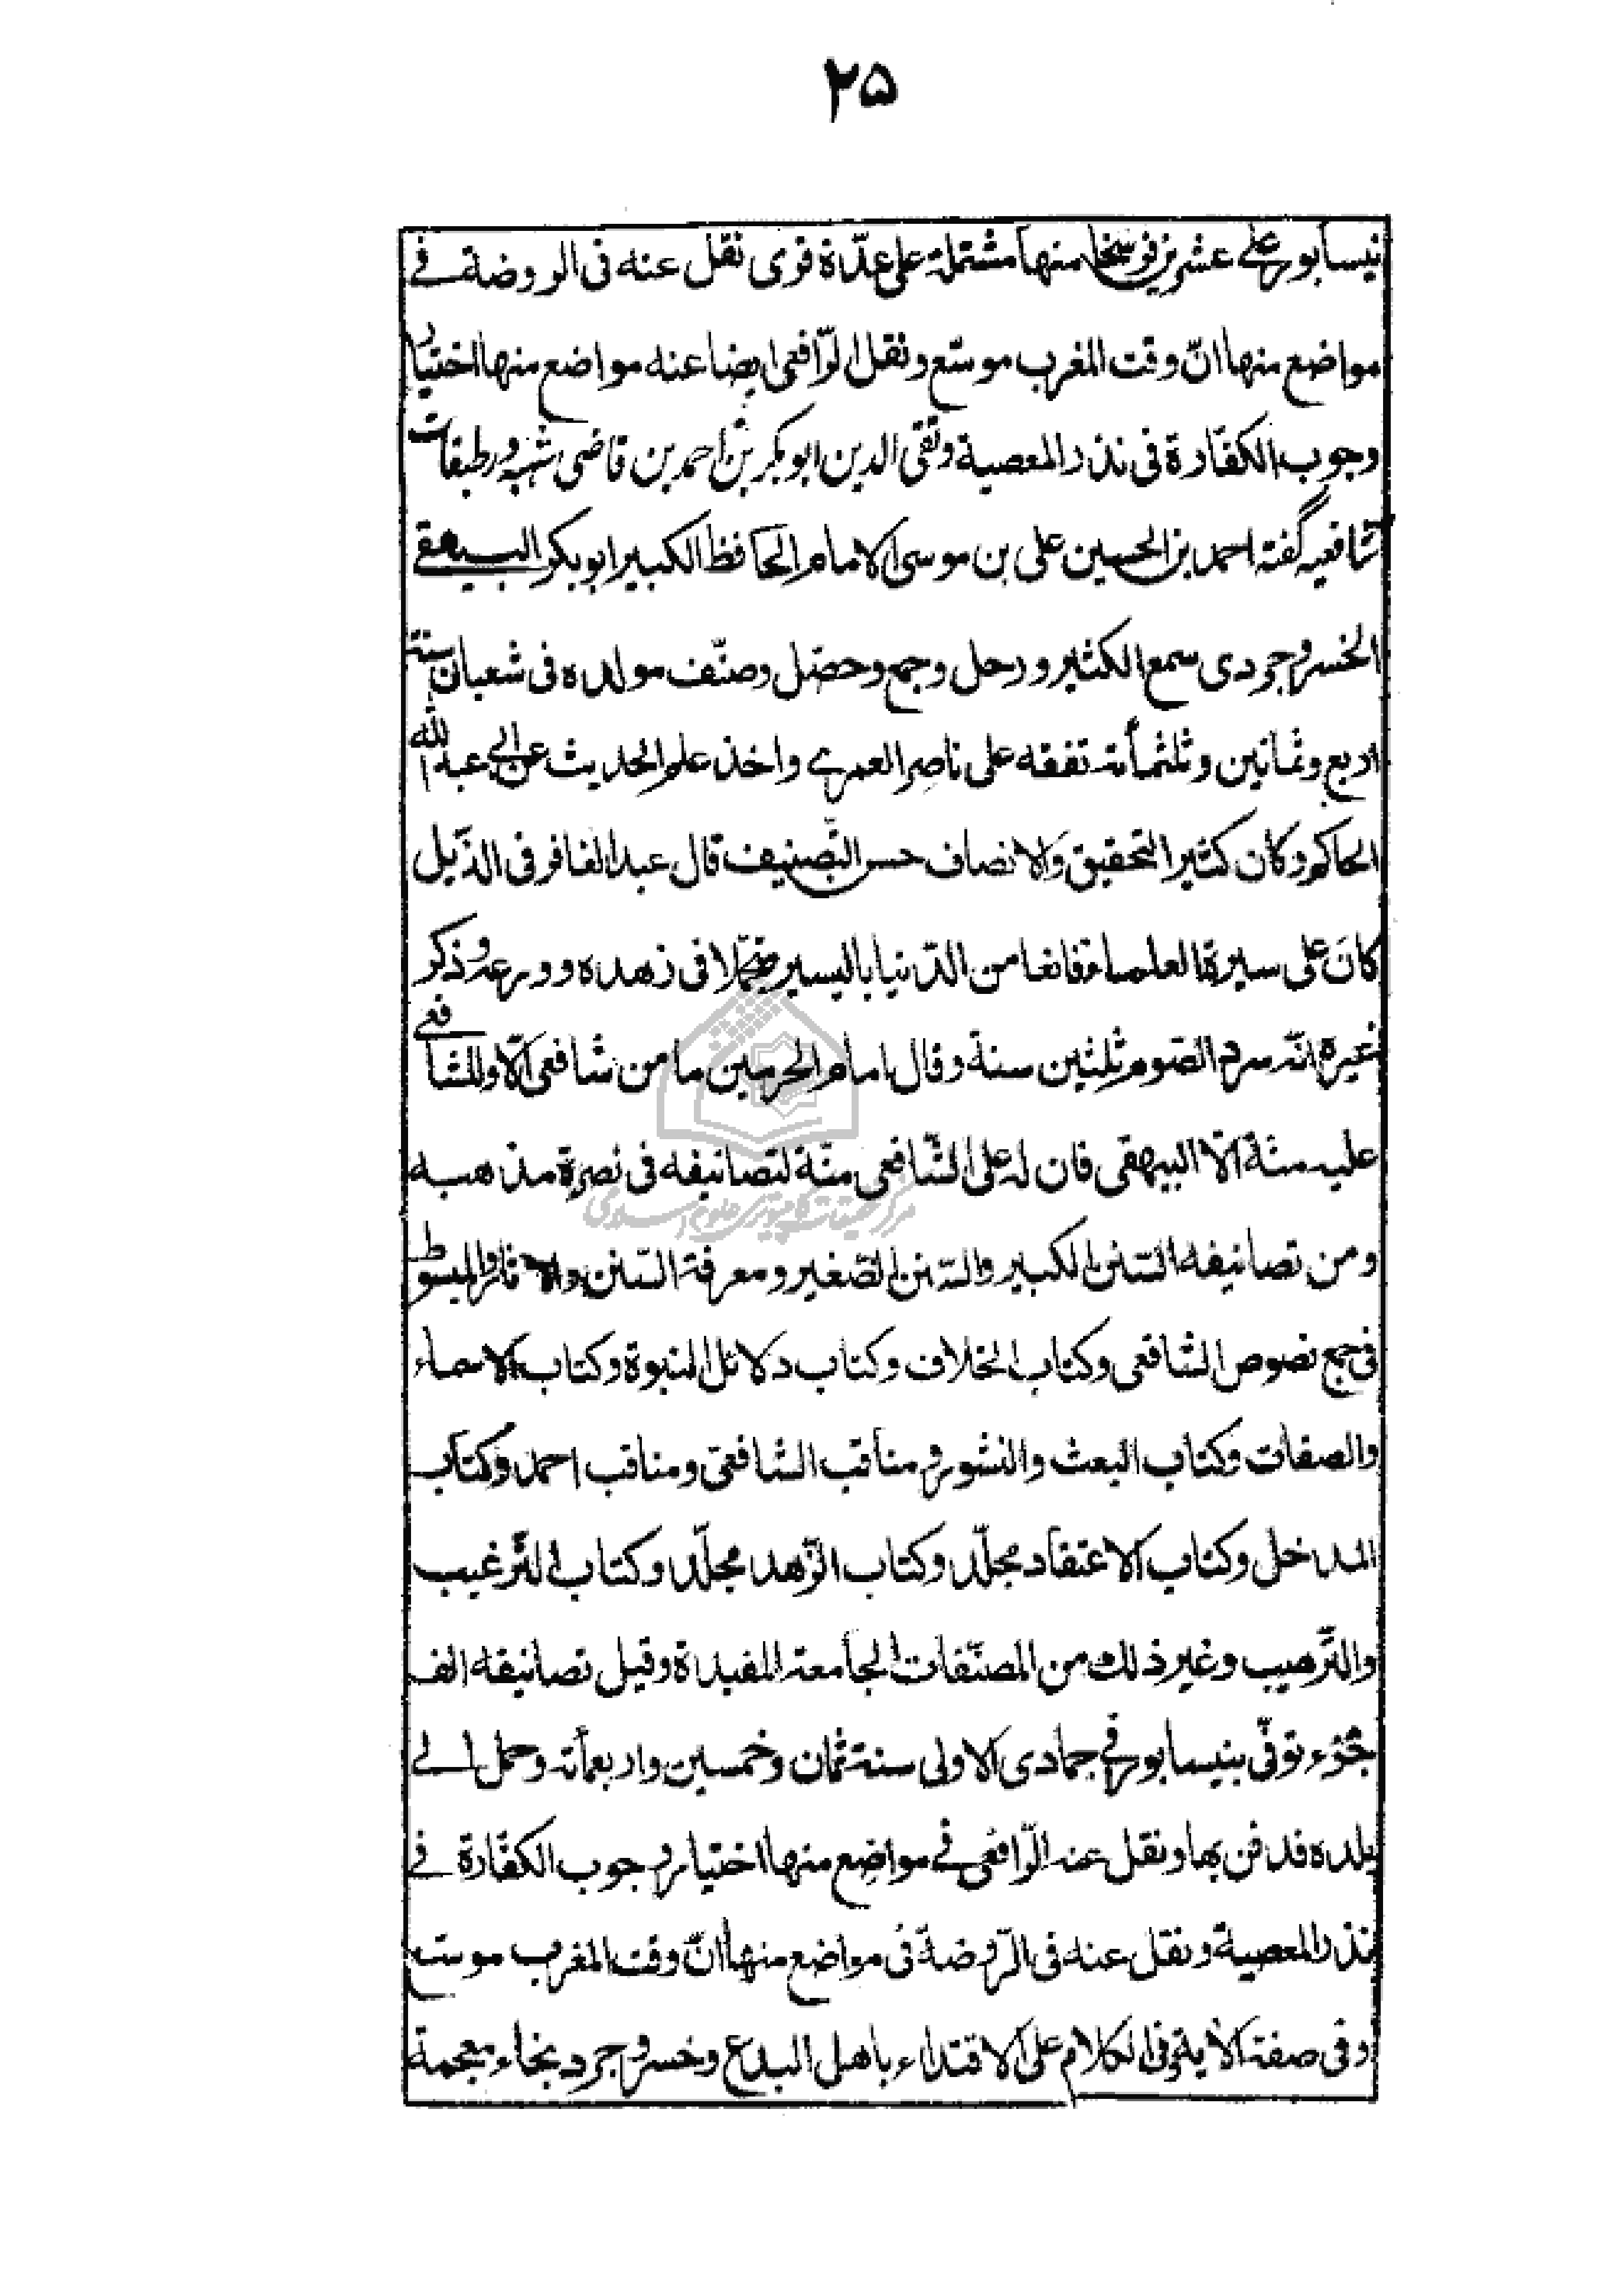 ۲۵
نیسابور علی عشرین فرسخا منها مشتملة علی عدّة قری نقل عنه فی الروضة فی
مواضع منها انّ وقت المغرب موسّع ونقل الرّافعی ایضا عنه مواضع منها اختیار
وجوب الکفّارة فی نذر المعصیة وتقی الدین ابو بکر بن احمد بن قاضی شهبه در طبقات
شافعیه گفته احمد بن الحسین علی بن موسی الامام الحافظ الکبیر ابو بکر البیهقی
الخسروجردی سمع الکثیر و رحل وجمع وحصّل وصنّف مولده فی شعبان سنة
اربع وثمانین وثلثمأته تفقه علی ناصر العمری واخذ علم الحدیث عن ابی عبد الله
الحاکم وکان کثیر التحقیق والانصاف حسن التّصنیف قال عبد الغافر فی الذّیل
کان علی سیرة العلماء قانعا من الدّنیا بالیسیر متجمّلا فی زهده وورعه وذکر
غیره انّه سرد الصّوم ثلثین سنة وقال امام الحرمین ما من شافعی الّا وللشافعی
علیه منة الّا البیهقی فان له علی الشّافعی منّة لتصانیفه فی نصرة مذهبه
ومن تصانیفه السّنن الکبیر والسّنن الصّغیر ومعرفة السّنن والاثار والمبسوط
فی جمع نصوص الشافعی وکتاب الخلاف وکتاب دلائل النبوة وکتاب الاسماء
والصفات وکتاب البعث والنشور ومناقب الشافعی ومناقب احمد وکتاب
المدخل وکتاب الاعتقاد مجلّد وکتاب الزّهد مجلّد وکتاب الترغیب
والتّرهیب وغیر ذلک من المصنّفات الجامعة المفیدة وقیل تصانیفه الف
جزء توفّی بنیسابور فی جمادی الاولی سنة ثمان وخمسین واربعمأته وحمل الی
بلده فدفن بها ونقل عنه الرّافعی فی مواضع منها اختیار وجوب الکفّارة فی
نذر المعصیة ونقل عنه فی الرّوضة فی مواضع منها انّ وقت المغرب موسع
وفی صفة الایة وفی الکلام علی الاقتداء باهل البدع وخسروجرد بخاء معجمة
مرکز تحقیقات کامپیوتری علوم اسلامی